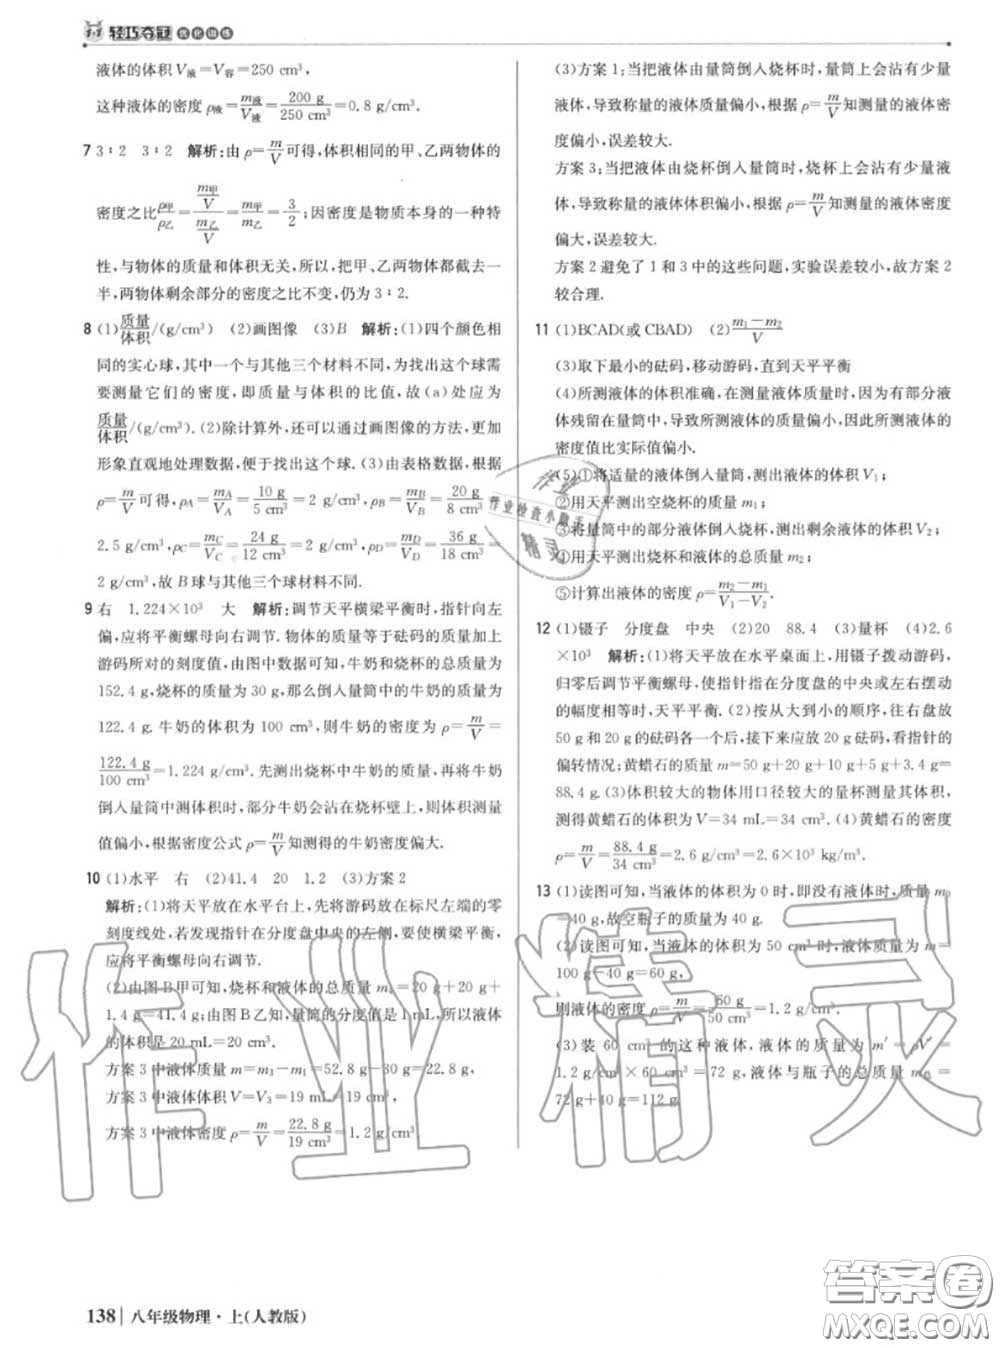 轻巧夺冠 优化训练
液体的体积 V液=V容=250 cm³,
这种液体的密度 ρ液=m液/V液=200 g/250 cm³=0.8 g/cm³.
7 3∶2 3∶2 解析:由 ρ=m/V可得,体积相同的甲、乙两物体的
密度之比ρ甲/ρ乙=(m甲/V)/(m乙/V)=m甲/m乙=3/2;因密度是物质本身的一种特
性,与物体的质量和体积无关,所以,把甲、乙两物体都截去一
半,两物体剩余部分的密度之比不变,仍为 3∶2.
8 (1)质量/体积/(g/cm³) (2)画图像 (3)B 解析:(1)四个颜色相
同的实心球,其中一个与其他三个材料不同,为找出这个球需
要测量它们的密度,即质量与体积的比值,故(a)处应为
质量/体积/(g/cm³).(2)除计算外,还可以通过画图像的方法,更加
形象直观地处理数据,便于找出这个球.(3)由表格数据,根据
ρ=m/V可得,ρA=mA/VA=10 g/5 cm³=2 g/cm³,ρB=mB/VB=20 g/8 cm³=
2.5 g/cm³,ρC=mC/VC=24 g/12 cm³=2 g/cm³,ρD=mD/VD=36 g/18 cm³=
2 g/cm³,故 B 球与其他三个球材料不同.
9 右 1.224×10³ 大 解析:调节天平横梁平衡时,指针向左
偏,应将平衡螺母向右调节.物体的质量等于砝码的质量加上
游码所对的刻度值,由图中数据可知,牛奶和烧杯的总质量为
152.4 g,烧杯的质量为 30 g,那么倒入量筒中的牛奶的质量为
122.4 g.牛奶的体积为 100 cm³,则牛奶的密度为 ρ=m/V=
122.4 g/100 cm³=1.224 g/cm³.先测出烧杯中牛奶的质量,再将牛奶
倒入量筒中测体积时,部分牛奶会沾在烧杯壁上,则体积测量
值偏小,根据密度公式 ρ=m/V知测得的牛奶密度偏大.
10 (1)水平 右 (2)41.4 20 1.2 (3)方案 2
解析:(1)将天平放在水平台上,先将游码放在标尺左端的零
刻度线处,若发现指针在分度盘中央的左侧,要使横梁平衡,
应将平衡螺母向右调节.
(2)由图 B 甲可知,烧杯和液体的总质量 m₁=20 g+20 g+
1.4 g=41.4 g;由图 B 乙知,量筒的分度值是 1 mL,所以液体
的体积是 20 mL=20 cm³.
方案 3 中液体质量 m=m₃-m₁=52.8 g-30 g=22.8 g,
方案 3 中液体体积 V=V₃=19 mL=19 cm³,
方案 3 中液体密度 ρ=m/V=22.8 g/19 cm³=1.2 g/cm³.
(3)方案 1:当把液体由量筒倒入烧杯时,量筒上会沾有少量
液体,导致称量的液体质量偏小,根据 ρ=m/V知测量的液体密
度偏小,误差较大.
方案 3:当把液体由烧杯倒入量筒时,烧杯上会沾有少量液
体,导致称量的液体体积偏小,根据 ρ=m/V知测量的液体密度
偏大,误差较大.
方案 2 避免了 1 和 3 中的这些问题,实验误差较小,故方案 2
较合理.
11 (1)BCAD(或 CBAD) (2)m₁-m₂/V
(3)取下最小的砝码,移动游码,直到天平平衡
(4)所测液体的体积准确,在测量液体质量时,因为有部分液
体残留在量筒中,导致所测液体的质量偏小,因此所测液体的
密度值比实际值偏小.
(5)①将适量的液体倒入量筒,测出液体的体积 V₁;
②用天平测出空烧杯的质量 m₁;
③将量筒中的部分液体倒入烧杯,测出剩余液体的体积 V₂;
④用天平测出烧杯和液体的总质量 m₂;
⑤计算出液体的密度 ρ=m₂-m₁/V₁-V₂.
12 (1)镊子 分度盘 中央 (2)20 88.4 (3)量杯 (4)2.6
×10³ 解析:(1)将天平放在水平桌面上,用镊子拨动游码,
归零后调节平衡螺母,使指针指在分度盘的中央或左右摆动
的幅度相等时,天平平衡.(2)按从大到小的顺序,往右盘放
50 g 和 20 g 的砝码各一个后,接下来应放 20 g 砝码,看指针的
偏转情况;黄蜡石的质量 m=50 g+20 g+10 g+5 g+3.4 g=
88.4 g.(3)体积较大的物体用口径较大的量杯测量其体积,
测得黄蜡石的体积为 V=34 mL=34 cm³.(4)黄蜡石的密度
ρ=m/V=88.4 g/34 cm³=2.6 g/cm³=2.6×10³ kg/m³.
13 (1)读图可知,当液体的体积为 0 时,即没有液体时,质量 m
=40 g,故空瓶子的质量为 40 g.
(2)读图可知,当液体的体积为 50 cm³ 时,液体的质量 m=
100 g-40 g=60 g,
则液体的密度 ρ=m/V=60 g/50 cm³=1.2 g/cm³.
(3)装 60 cm³ 的这种液体,液体的质量为 m′=ρV′=
1.2 g/cm³×60 cm³=72 g,液体与瓶子的总质量 m总=
72 g+40 g=112 g.
作业
作业检查小助手
精灵
作业精灵
答案圈
MXQE.COM
138 八年级物理·上(人教版)